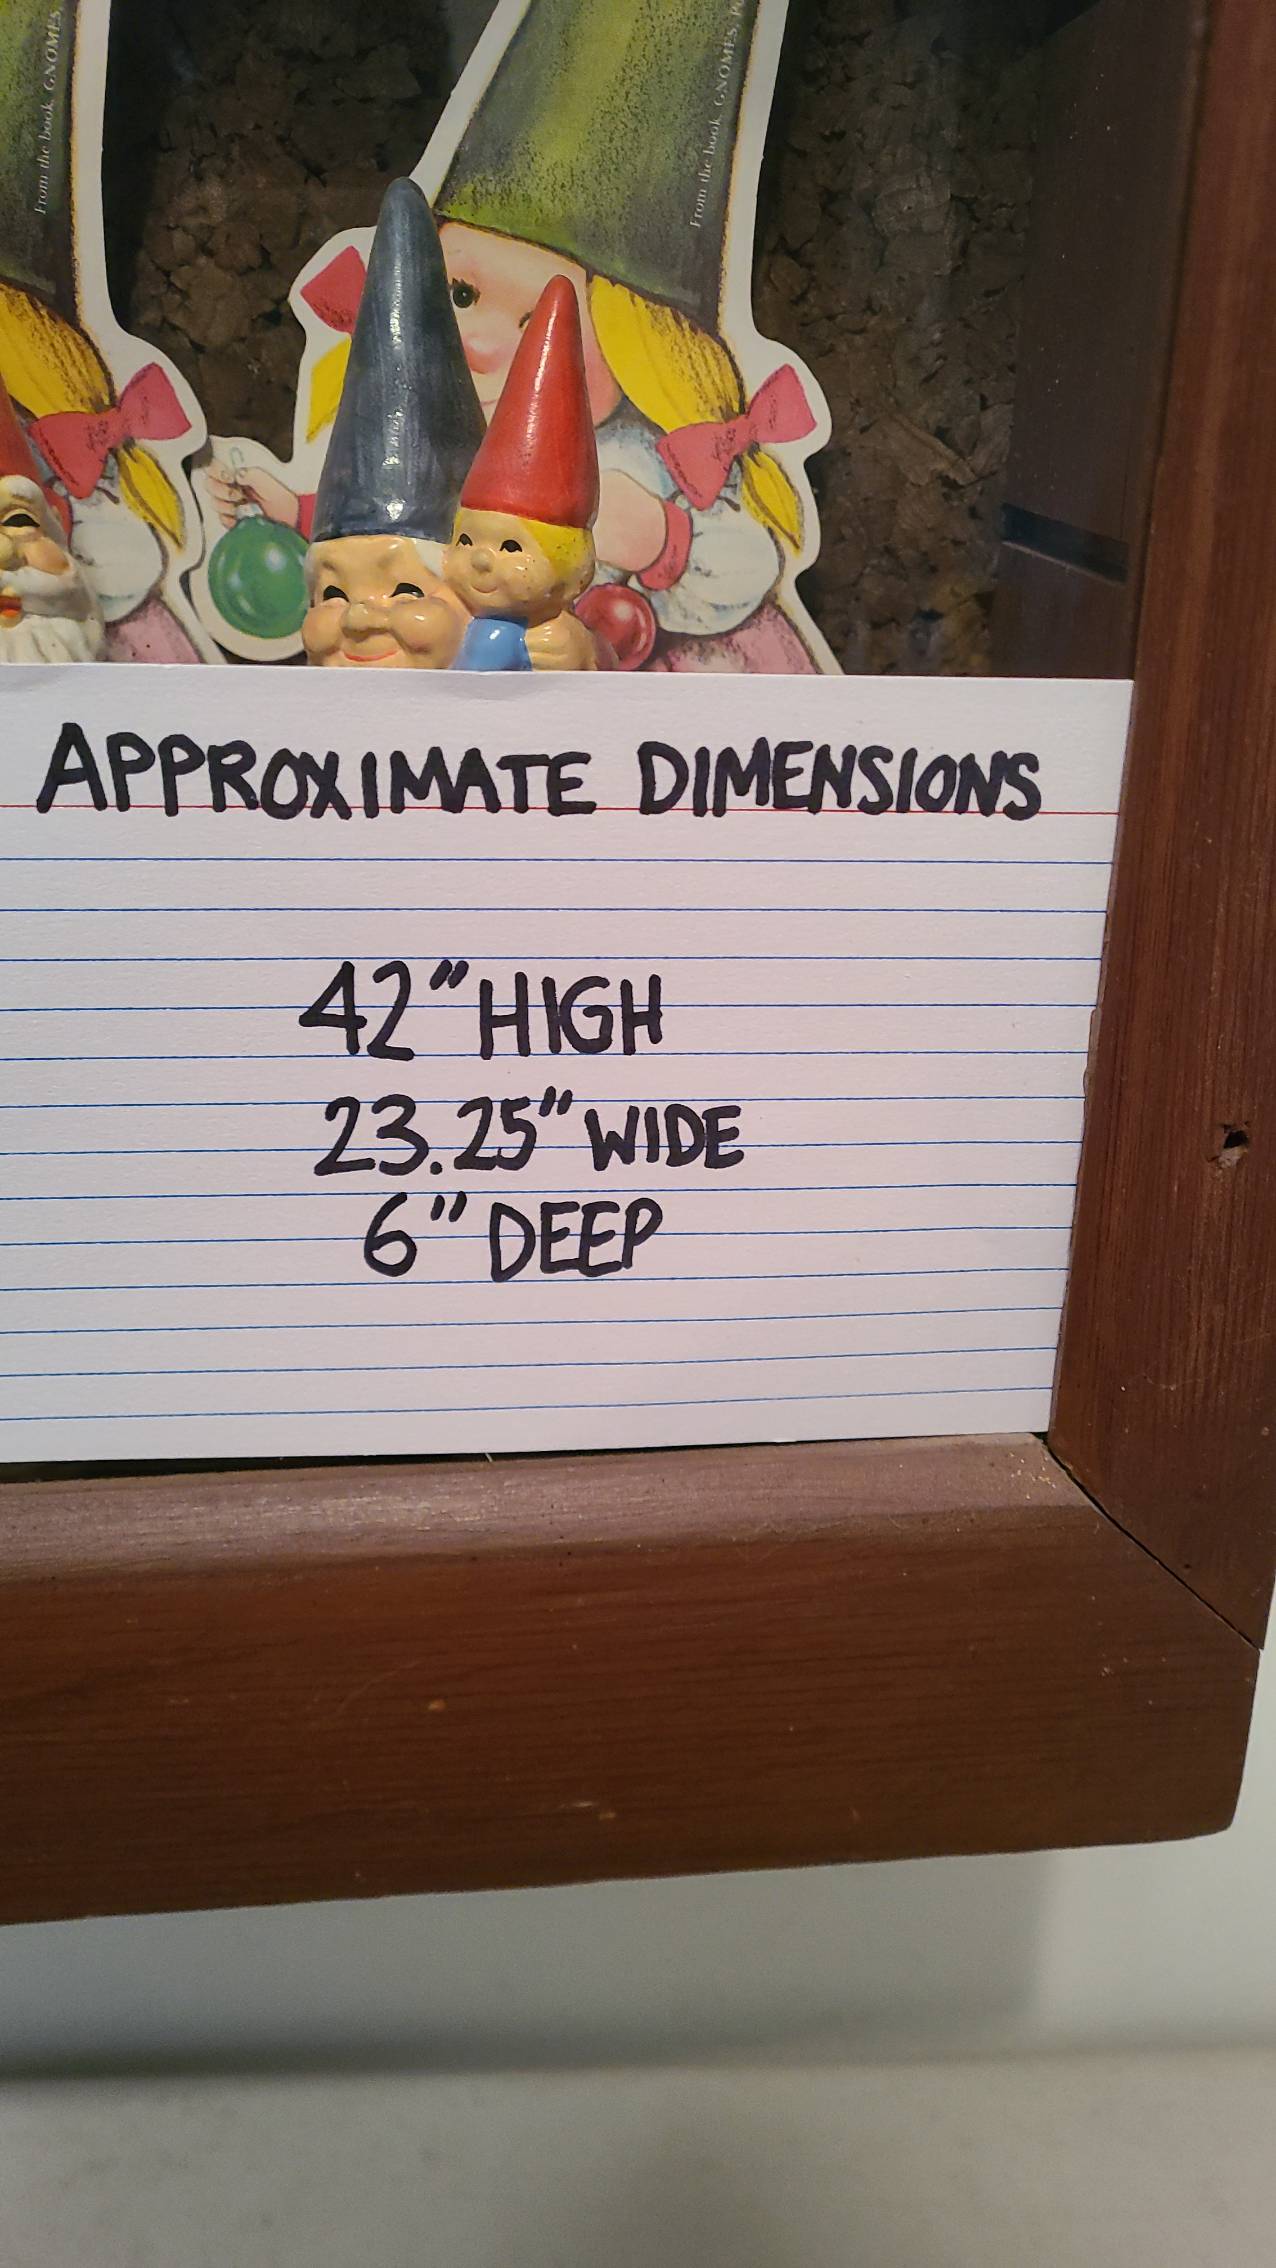 From the book GNOMES
From the book GNOMES, P
APPROXIMATE DIMENSIONS
42" HIGH
23.25" WIDE
6" DEEP